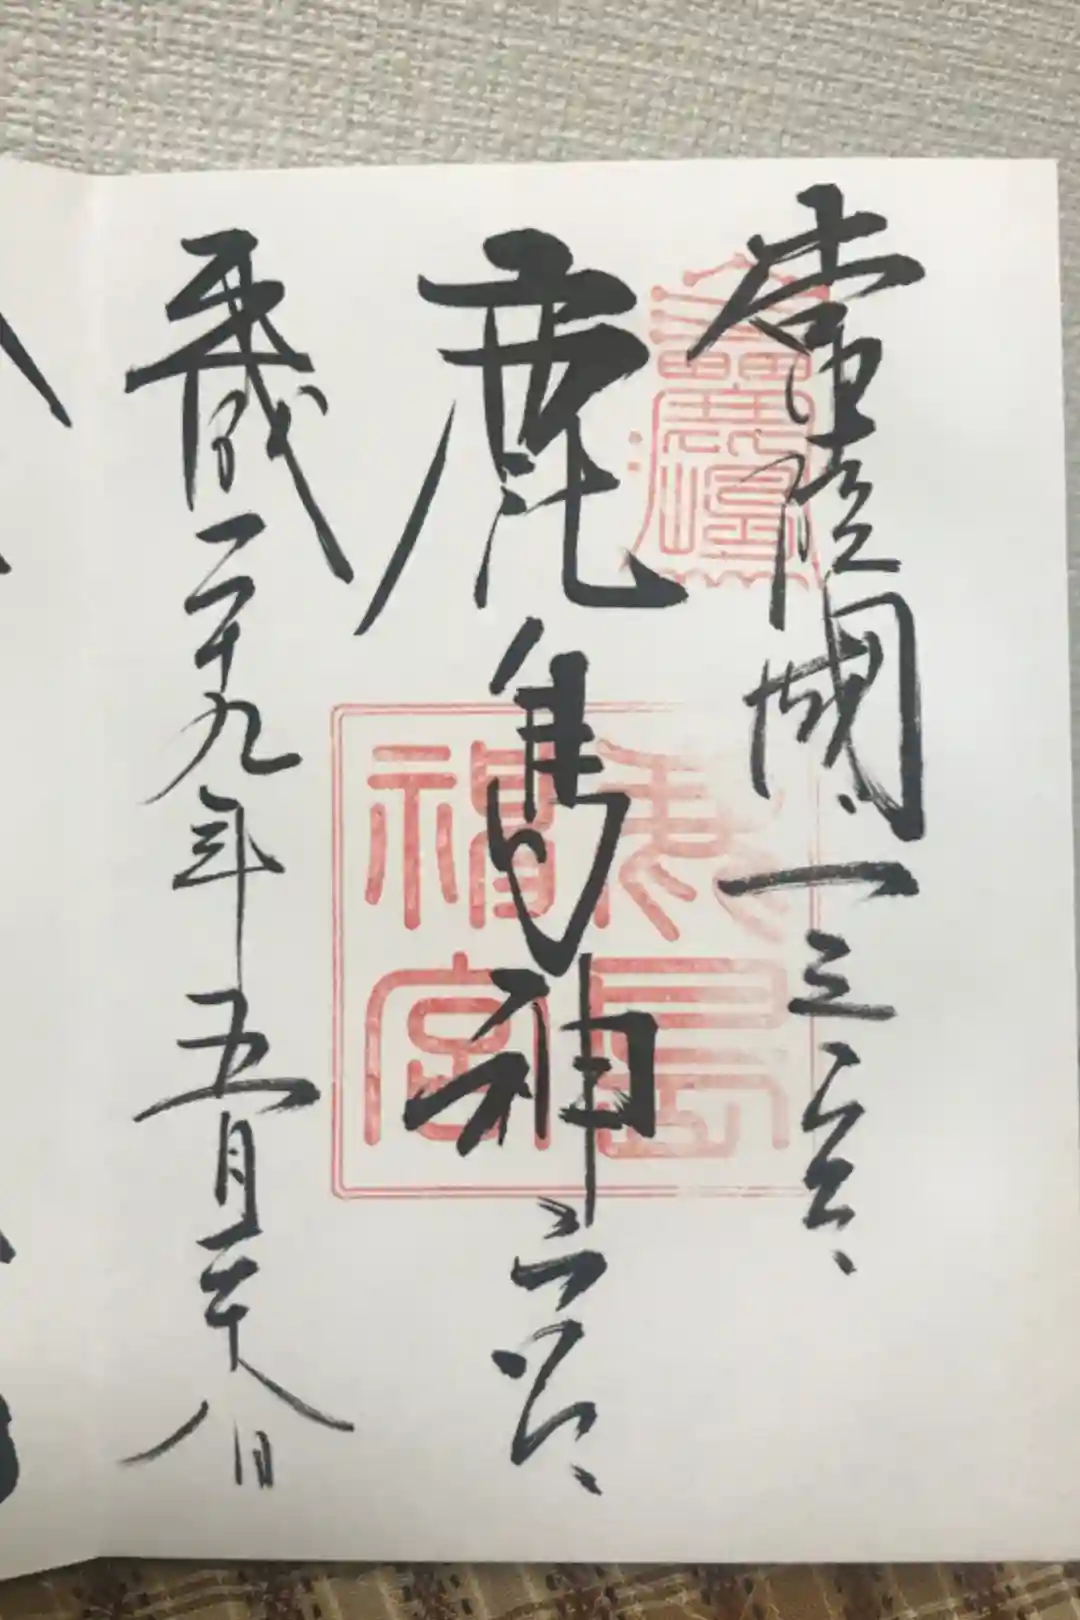 常陸國一之宮
鹿島神宮
平成二十九年五月二十八日
鹿島神宮